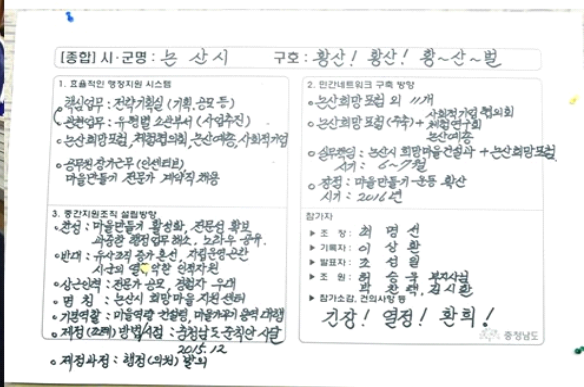 [종합] 시·군명 : 논산시 구호 : 황산! 황산! 황~산~벌
1. 효율적인 행정지원 시스템
핵심업무 : 전략기획실 (기획, 공모 등)
관련업무 : 유형별 소관부서 (사업추진)
논산희망포럼, 체험협의회, 논산예총, 사회적기업
공무원 장기근무 (인센티브)
마을만들기 전문가 계약직 채용
2. 민간네트워크 구축 방향
논산희망포럼 외 11개
논산희망포럼 (주축) + 사회적기업 협의회
체험연구회
논산예총
실무책임 : 논산시 희망마을건설과 + 논산희망포럼
시기 : 6~7월
장점 : 마을만들기 운동 확산
시기 : 2016년
3. 중간지원조직 설립방향
찬성 : 마을만들기 활성화, 전문성 확보
과중한 행정업무 해소, 노하우 공유
반대 : 유사조직 증가 혼선, 자립운영곤란
시군의 인적자원
상근인력 : 전문가 공모, 경험자 우대
명칭 : 논산시 희망마을 지원센터
기본역할 : 마을역량 컨설팅, 마을가꾸기 용역 대행
제정(조례) 방법/시점 : 충청남도 준칙안 시달
2015.12
제정과정 : 행정(의회) 발의
참가자
▶ 조 장 : 최명선
▶ 기록자 : 이상환
▶ 발표자 : 조성월
▶ 조 원 : 허승욱 부지사님
박찬택, 김시환
▶ 참가소감, 건의사항 등
긴장! 열정! 환희!
충청남도